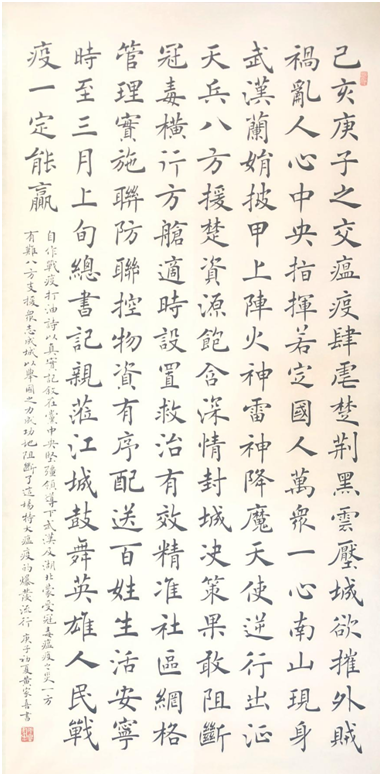 己亥庚子之交瘟疫肆虐楚荊黑雲壓城欲摧外賊
禍亂人心中央指揮若定國人萬衆一心南山現身
武漢蘭娟披甲上陣火神雷神降魔天使逆行出征
天兵八方援楚資源飽含深情封城決策果敢阻斷
冠毒橫行方艙適時設置救治有效精准社區網格
管理實施聯防聯控物資有序配送百姓生活安寧
時至三月上旬總書記親蒞江城鼓舞英雄人民戰
疫一定能贏
自作戰疫打油詩以真實記叙在黨中央堅強領導下武漢及湖北蒙受冠毒瘟疫之災一方
有難八方支援衆志成城以舉國之力成功地阻斷了這場特大瘟疫的爆發流行 庚子初夏黄家喜書